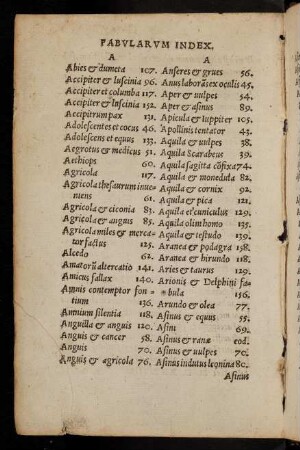 FABVLARVM INDEX.
A
Abies & dumeta 107.
Accipiter & luscinia 96.
Accipiter et columba 117.
Accipiter & luscinia 152.
Accipitrum pax 131.
Adolescentes et cocus 46.
Adolescens et equus 133.
Aegrotus & medicus 51.
Aethiops 60.
Agricola 117.
Agricola thesaurum inue-
niens 61.
Agricola & ciconia 83.
Agricola & anguis 85.
Agricola miles & merca-
tor factus 125.
Alcedo 62.
Amatorũ altercatio 141.
Amicus fallax 140.
Amnis contemptor fon-
tium 136.
Amnium silentia 118.
Anguilla & anguis 120.
Anguis & cancer 58.
Anguis 70.
Anguis & agricola 76.
A
Anseres & grues 56.
Anus laborãs ex oculis 45.
Aper & uulpes 54.
Aper & asinus 89.
Apicula & Iuppiter 105.
Apollinis tentator 43.
Aquila & uulpes 41.
Aquila & Scarabeus 39.
Aquila sagitta cõfixa 74.
Aquila & monedula 82.
Aquila & cornix 92.
Aquila & pica 121.
Aquila et cuniculus 129.
Aquila olim homo 135.
Aquila & testudo 139.
Aranea & podagra 158.
Aranea & hirundo 118.
Aries & taurus 129.
Arionis & Delphini fa-
bula 156.
Arundo & olea 77.
Asinus & equus 55.
Asini 69.
Asinus & ranæ eod.
Asinus & uulpes 70.
Asinus indutus leonina 80.
Asinus